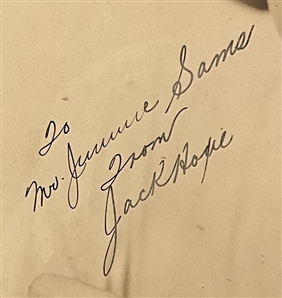 To
Mr. Jimmie Sams
From
Jack Hope